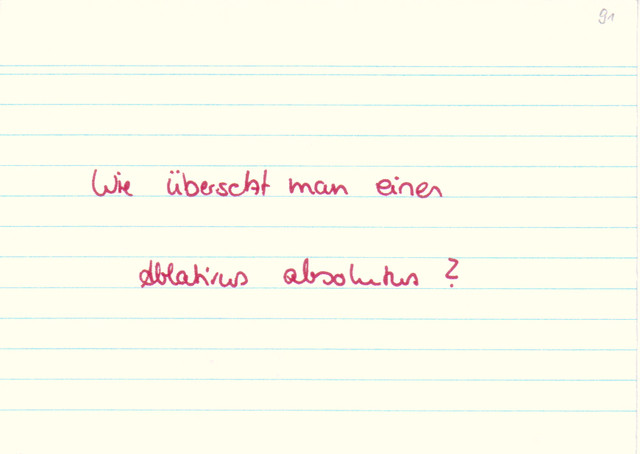 91
Wie übersetzt man einen
Ablativus absolutus?